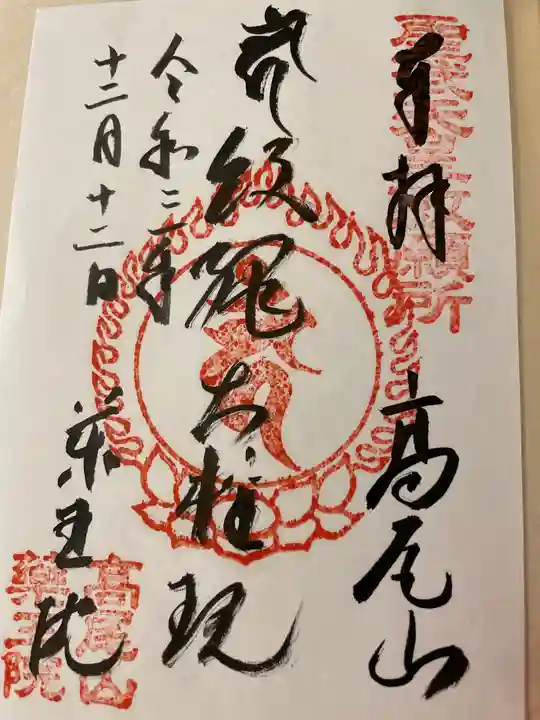 奉拝
高尾山
飯縄大権現
令和三年
十二月十二日
薬王院
聖武天皇敕願所
高尾山
藥王院